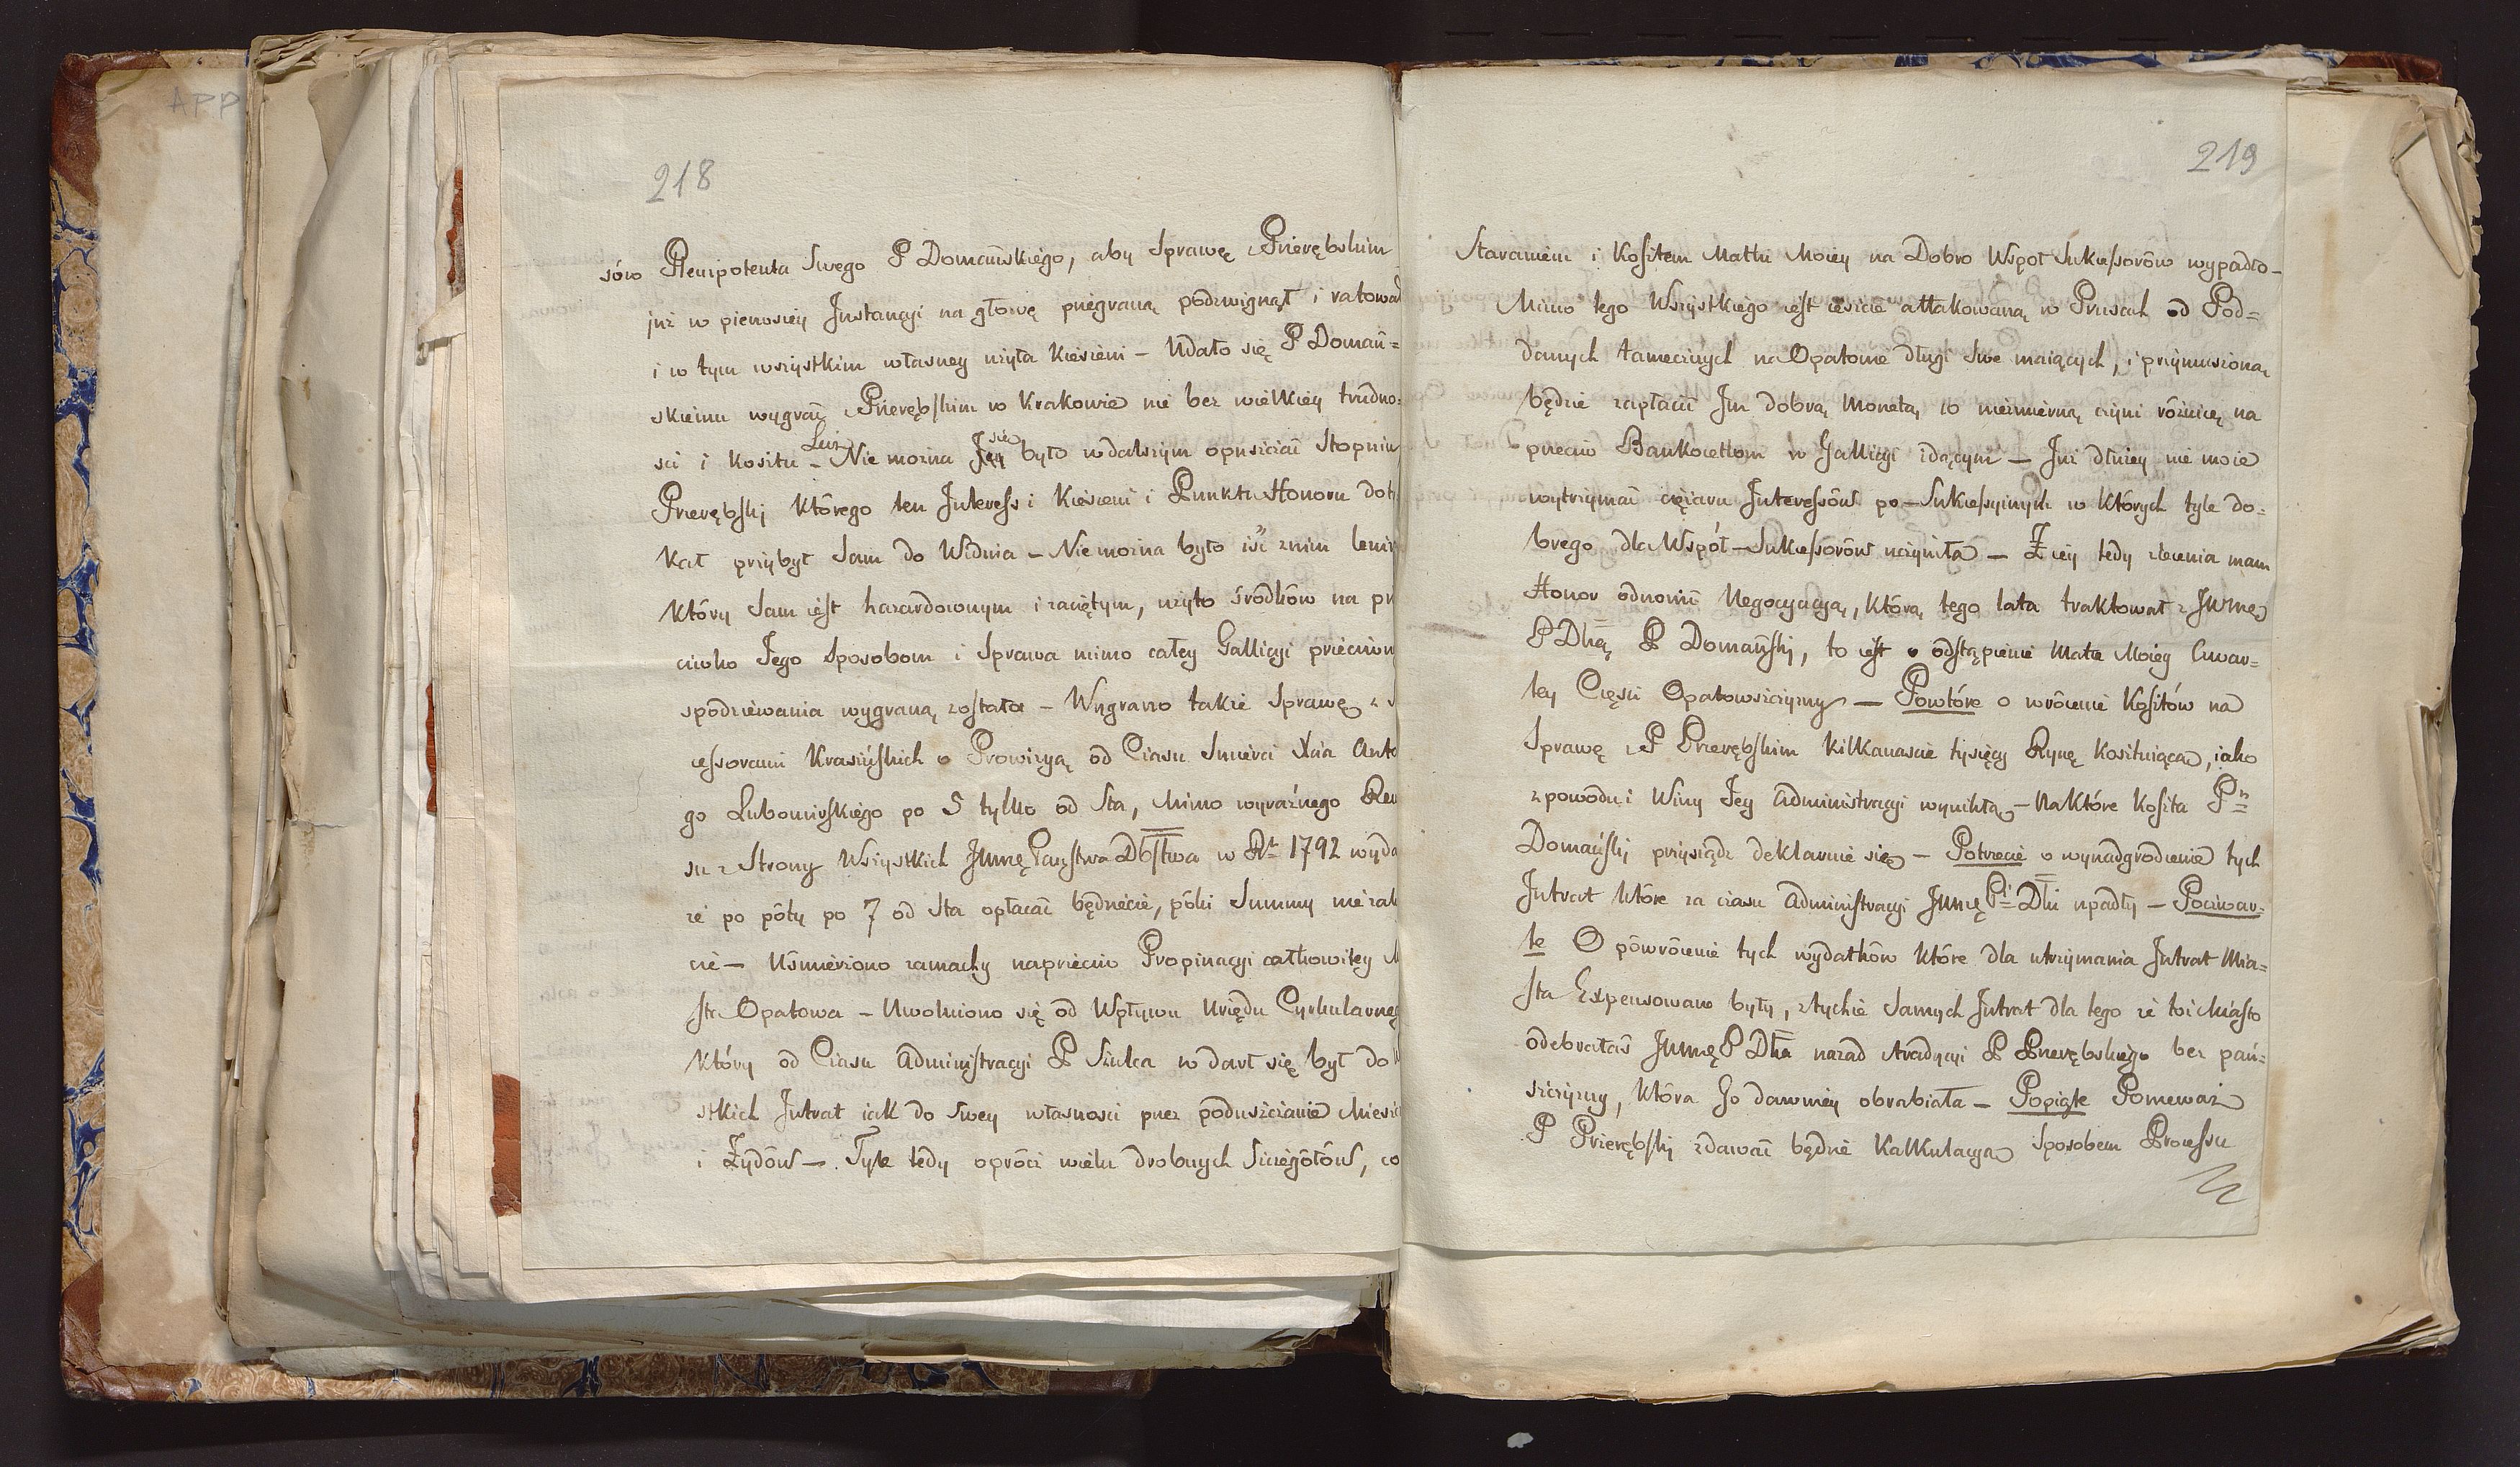 APP
218
sów Plenipotenta Swego P Domańskiego, aby Sprawę z Przerębskim
już w pierwszey Instancyi na głowę przegraną podzwignął i ratował
i w tym wszystkim własney użyła Kieszeni – Udało się P Domań=
skiemu wygrać z Przerębskim w Krakowie nie bez wielkiey trudno=
sci i Kosztu – Lecz Nie można się było w dalszym opuszczać Stopniu
Przerębski którego ten Interess i Kieszeni i Punktu Honoru doty
kał przybył Sam do Widnia – Nie można było iść z nim leniw
który Sam iest hazardownym i zaciętym, użyto śrzodków na prz
ciwko Jego Sposobom i Sprawa mimo całey Gallicyi przeciwn
spodziewania wygraną została – Wygrano także Sprawę z S
cessorami Krasińskich o Prowizyą od Czasu Smierci Xcia Anto
go Lubomirskiego po 5 tylko od Sta, Mimo wyraźnego Rew
su z Strony Wszystkich JWWę Państwa Dbstwa w Rt 1792 wyda
że po póty po 7 od Sta opłacać będziecie, póki Summy nie zak
cie – Uśmierzono zamachy naprzeciw Propinacyi całkowitey M
sta Opatowa – Uwolniono się od Wpływu Urzędu Cyrkularneg
który od Czasu Administracyi P Szulca wdarł się był do W
stkich Intrat iak do Swey własnosci przez poduszczanie Miesz
i Żydów – Tyle tedy oprócz wielu drobnych Szczegółów, co
219
Staraniem i Kosztem Matki Moiey na Dobro Wspoł Sukcessorów wypadło –
Mimo tego Wszystkiego iest ieszcze attakowaną w Prusach od Pod=
danych tamecznych na Opatowie długi Swe maiących, i przymuszoną
będzie zapłacić Im dobrą Monetą co niezmierną czyni różnicę na
przeciw Bankocetlom w Gallicyi idącym – Już dłużey nie może
wytrzymać ciężaru Interessów po–Sukcessyinych w których tyle do=
brego dla Współ–Sukcessorów uczyniła – Z iey tedy zlecenia mam
Honor odnowić Negocyacyą, którą tego lata traktował z JWWę
P Dką P Domański, to iest o odstąpienie Matce Moiey Czwar=
tey Częsci Opatowszczyzny – Powtóre o wrócenie Kosztów na
Sprawę z P Przerębskim kilkanascie tysięcy Rynę kosztuiącą, iako
z powodu i Winy Jey Administracyi wynikłą – Na które koszta Pn
Domański przysiądz deklaruie się – Potrzecie o wynadgrodzenie tych
Intrat które za czasu Administracyi JWWę Pi Dki upadły – Poczwar=
te O powrócenie tych wydatków które dla utrzymania Intrat Mia=
sta Expensowane były, z tychże Samych Intrat dla tego że toż Miasto
odebrałaś JWWę P Dka nazad tradycyi P Przerębskiego bez pań=
szczyzny, która Go dawniey obrabiała – Popiąte Ponieważ
P Przerębski zdawać będzie Kalkulacyą Sposobem Processu